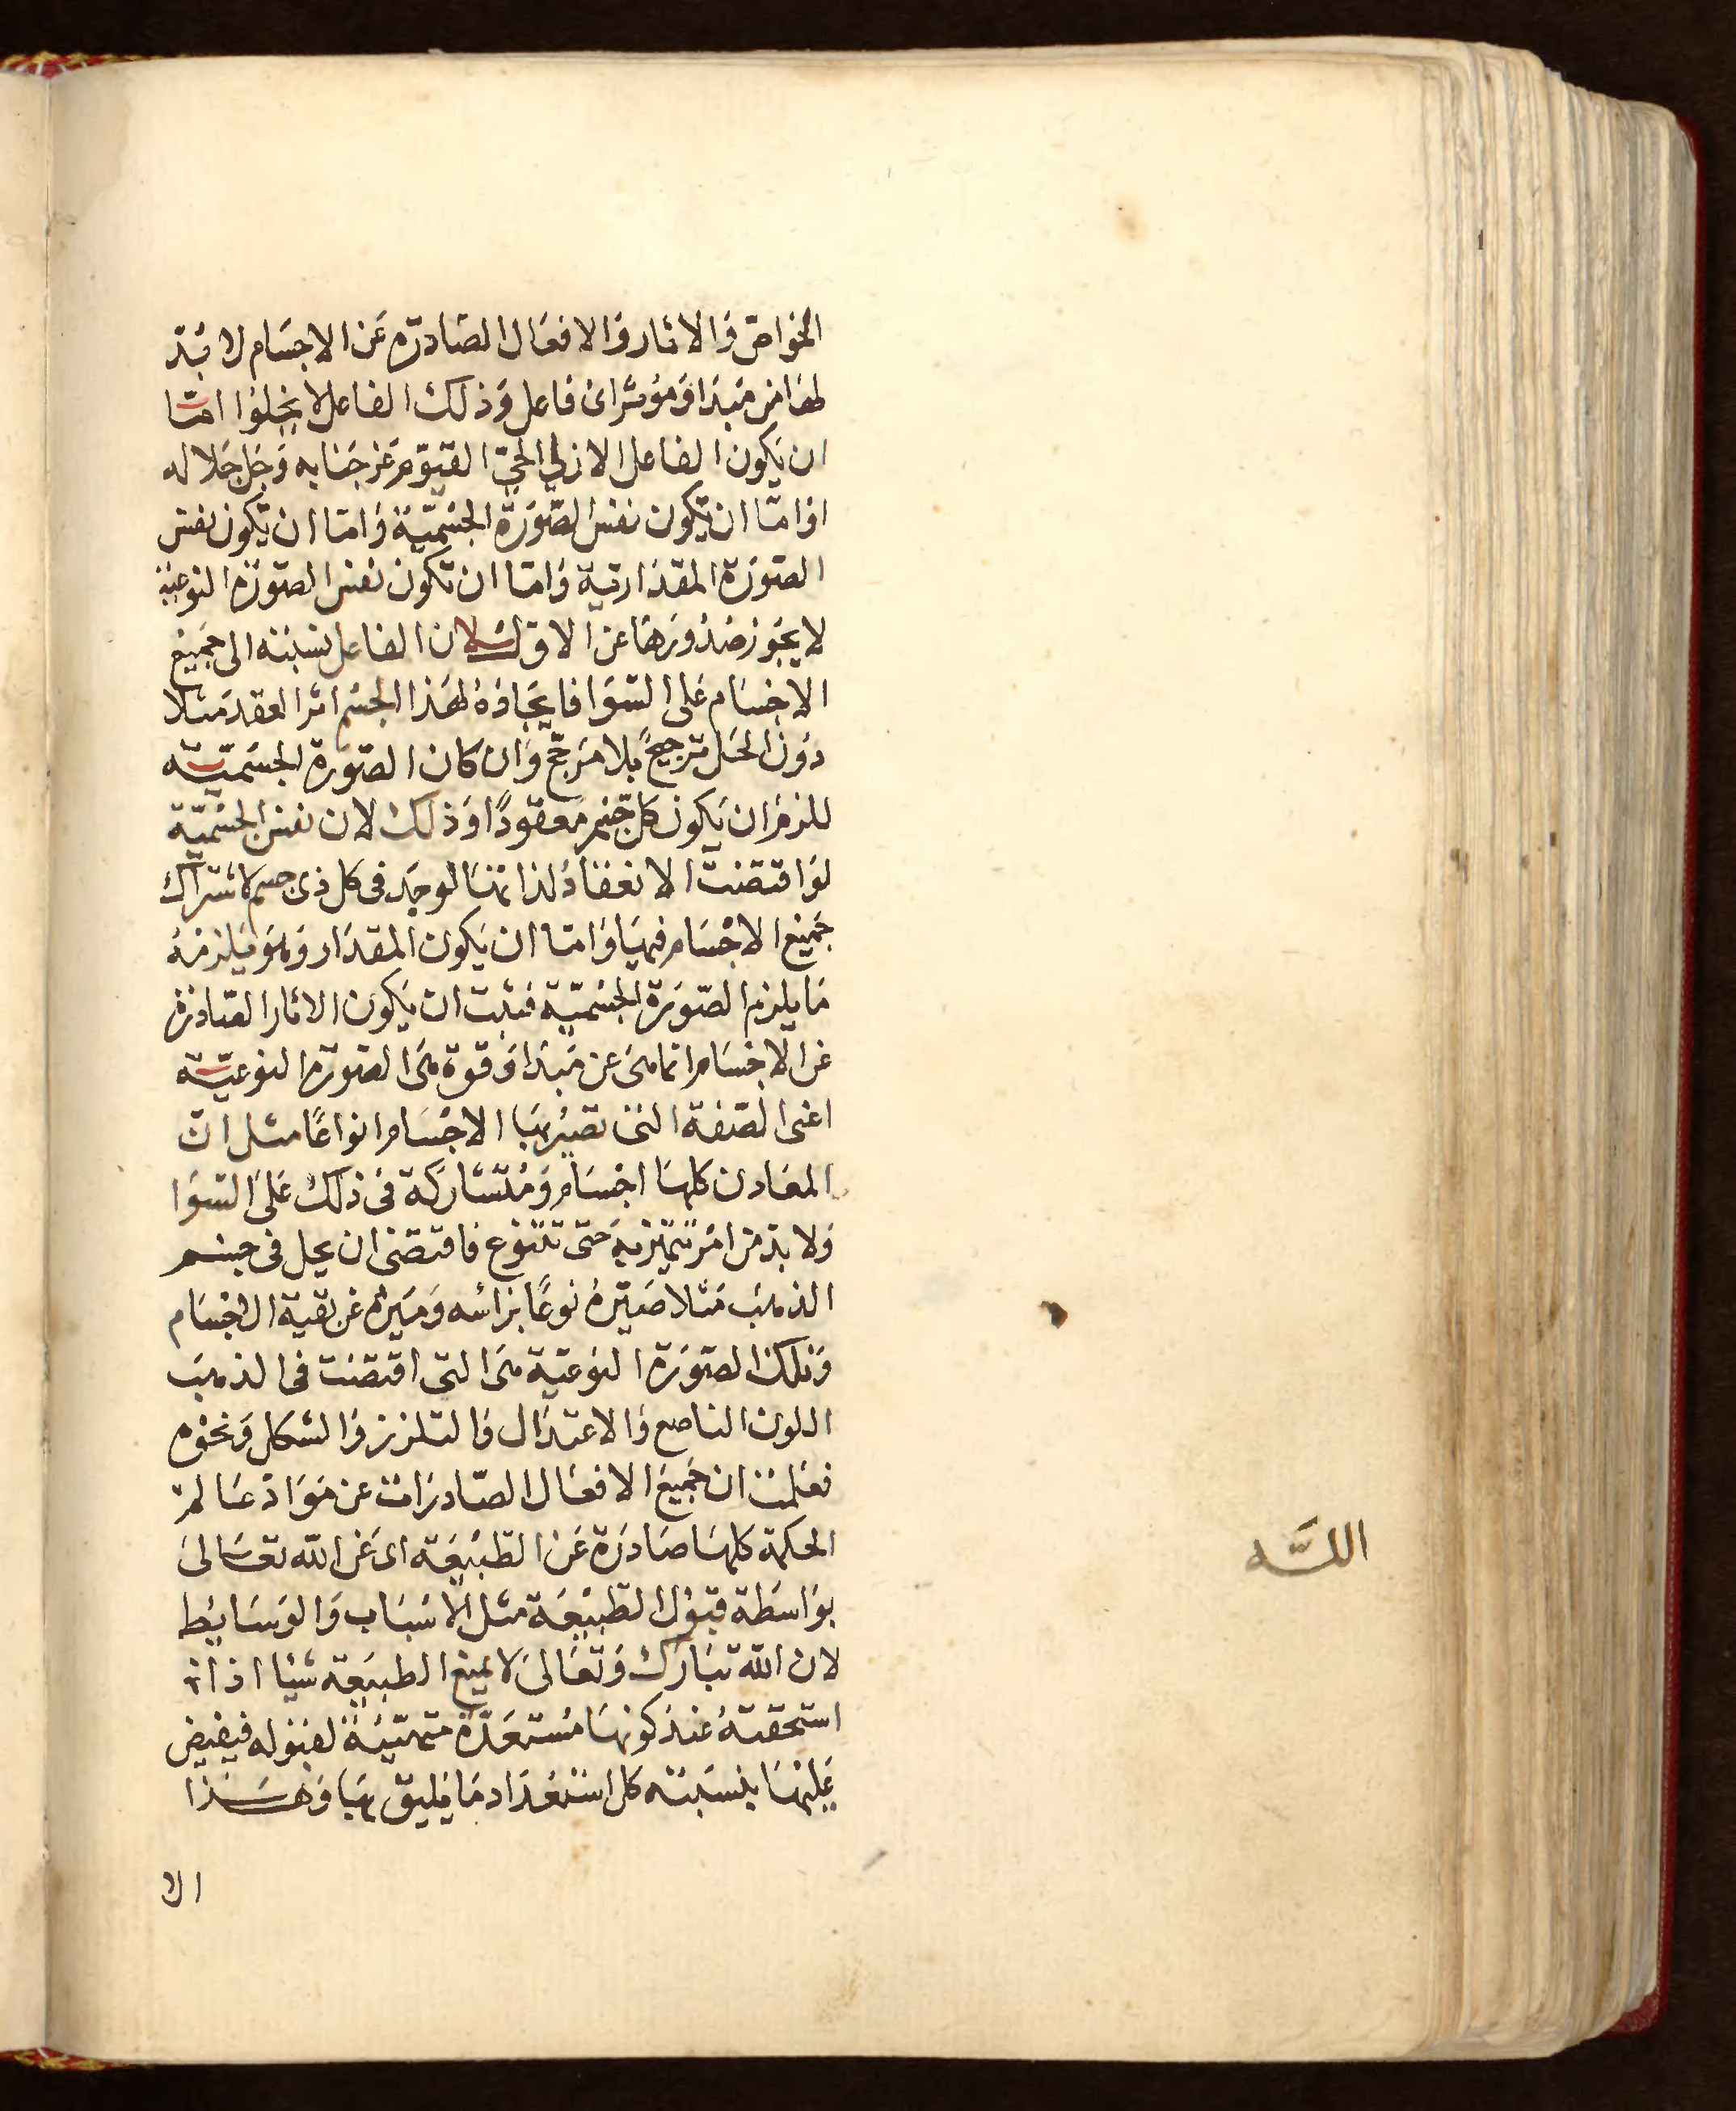 الخواص والاثار والافعال الصادره عن الاجسام لا بد
لها من مبدا ومؤثر اى فاعل وذلك الفاعل لا يخلوا امّا
ان يكون الفاعل الازلي الحيّ القيوم عز جنابه وجل جلاله
اوامّا ان يكون نفس الصّورة الجسميّة وامّا ان يكون نفس
الصورة المقدارية وامّا ان تكون نفس الصورة النوعية
لا يجوز صدورها عن الاول لان الفاعل نسبته الى جميع
الاجسام على السّوا فايجاده لهذا الجسم اثر العقد مثلا
دون الحل ترجيح بلا مرجح وان كان الصورة الجسميّة
للزم ان يكون كل جسم معقودًا وذلك لان نفس الجسميّة
لو اقتضت الانعقاد لذاتها لوجد فى كل ذى جسم لاشتراك
جميع الاجسام فيها وامّا ان يكون المقدار وهو يلزمه
ما يلزم الصّورة الجسميّة فثبت ان يكون الاثار الصّادره
عن الاجسام انما هى عن مبدا وقوة هى الصورة النوعيّة
اعنى الصّفة التى تصير بها الاجسام انواعًا مثل انّ
المعادن كلها اجسام ومتشاركة فى ذلك على السّوا
ولا بدّ من امر تتميّز به حتى تتنوع فاقتضى ان يحل فى جسم
الذهب مثلا صيّره نوعًا برأسه وميزه عن بقية الاجسام
وتلك الصّورة النوعيّة هى التى اقتضت فى الذهب
اللون الناصع والاعتدال والتلزز والشكل ونحوه
فعلمنا ان جميع الافعال الصّادرات عن موادّ عالم
الحكمة كلها صادرة عن الطّبيعة اى عن الله تعالى
بواسطة قبول الطّبيعة مثل الاسباب والوسايط
لان الله تبارك وتعالى لا يمنع الطبيعة شيا اذا
استحقته عند كونها مستعدّة متهيّئة لقبوله فيفيض
عليها بنسبته كل استعداد ما يليق بها وهذا
الا
اللّه